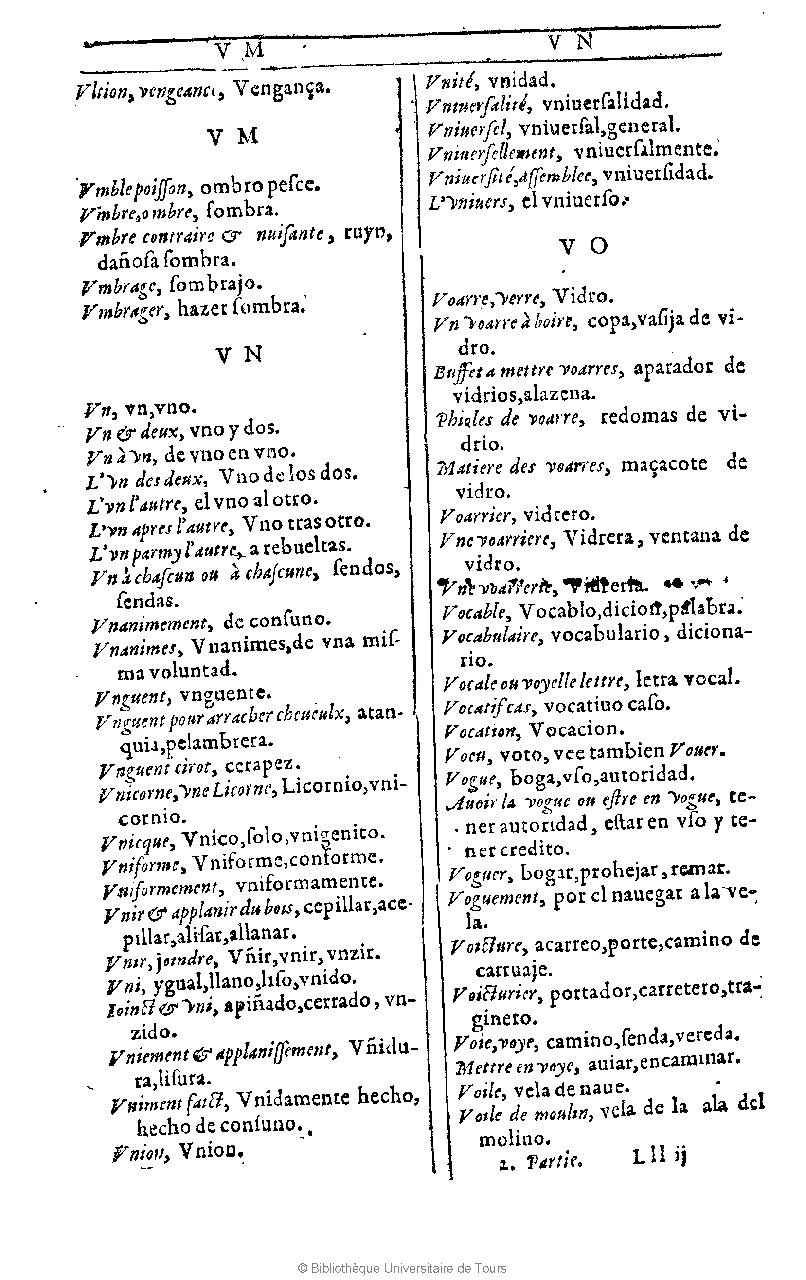 V M
V N
Vltion, vengeance, Vengança.
V M
Vmble poiſſon, ombro peſce.
Vmbre, ombre, ſombra.
Vmbre contraire & nuiſante, ruyn,
dañoſa ſombra.
Vmbrage, ſombrajo.
Vmbrager, hazer ſombra.
V N
Vn, vn,vno.
Vn & deux, vno y dos.
Vn à vn, de vno en vno.
L'vn des deux, Vno de los dos.
L'vn l'autre, el vno al otro.
L'vn apres l'autre, Vno tras otro.
L'vn parmy l'autre, a rebueltas.
Vn à chaſcun ou à chaſcune, ſendos,
ſendas.
Vnanimement, de conſuno.
Vnanimes, Vnanimes,de vna miſ-
ma voluntad.
Vnguent, vnguente.
Vnguent pour arracher cheueulx, atan-
quia,pelambrera.
Vnguent cirot, cerapez.
Vnicorne,vne Licorne, Licornio,vni-
cornio.
Vnicque, Vnico,ſolo,vnigenito.
Vniforme, Vniforme,conforme.
Vniformement, vniformamente.
Vnir & applanir du bois, cepillar,ace-
pillar,aliſar,allanar.
Vnir, joindre, Vñir,vnir,vnzir.
Vni, ygual,llano,liſo,vnido.
Ioinct & vni, apiñado,cerrado, vn-
zido.
Vniement & applaniſſement, Vñidu-
ra,liſura.
Vniment faict, Vnidamente hecho,
hecho de conſuno.
Vnion, Vnion.
Vnité, vnidad.
Vniuerſalité, vniuerſalidad.
Vniuerſel, vniuerſal,general.
Vniuerſellement, vniuerſalmente.
Vniuerſité,aſſemblee, vniuerſidad.
L'vniuers, el vniuerſo.
V O
Voarre,verre, Vidro.
Vn voarre à boire, copa,vaſija de vi-
dro.
Buffet a mettre voarres, aparador de
vidrios,alazena.
Phioles de voarre, redomas de vi-
drio.
Matiere des voarres, maçacote de
vidro.
Voarrier, vidrero.
Vne voarriere, Vidrera, ventana de
vidro.
Vne voarrerie, Vidreria.
Vocable, Vocablo,dicion,palabra.
Vocabulaire, vocabulario, diciona-
rio.
Vocale ou voyelle lettre, letra vocal.
Vocatif cas, vocatiuo caſo.
Vocation, Vocacion.
Voeu, voto, vee tambien Vouer.
Vogue, boga,vſo,autoridad.
Auoir la vogue ou eſtre en vogue, te-
ner autoridad, eſtar en vſo y te-
ner credito.
Voguer, bogar,prohejar, remar.
Voguement, por el nauegar a la ve-
la.
Voicture, acarreo,porte,camino de
carruaje.
Voicturier, portador,carretero,tra-
ginero.
Voie,voye, camino,ſenda,vereda.
Mettre en voye, auiar,encaminar.
Voile, vela de naue.
Voile de moulin, vela de la ala del
molino.
2. Partie. Lll ij
© Bibliothèque Universitaire de Tours